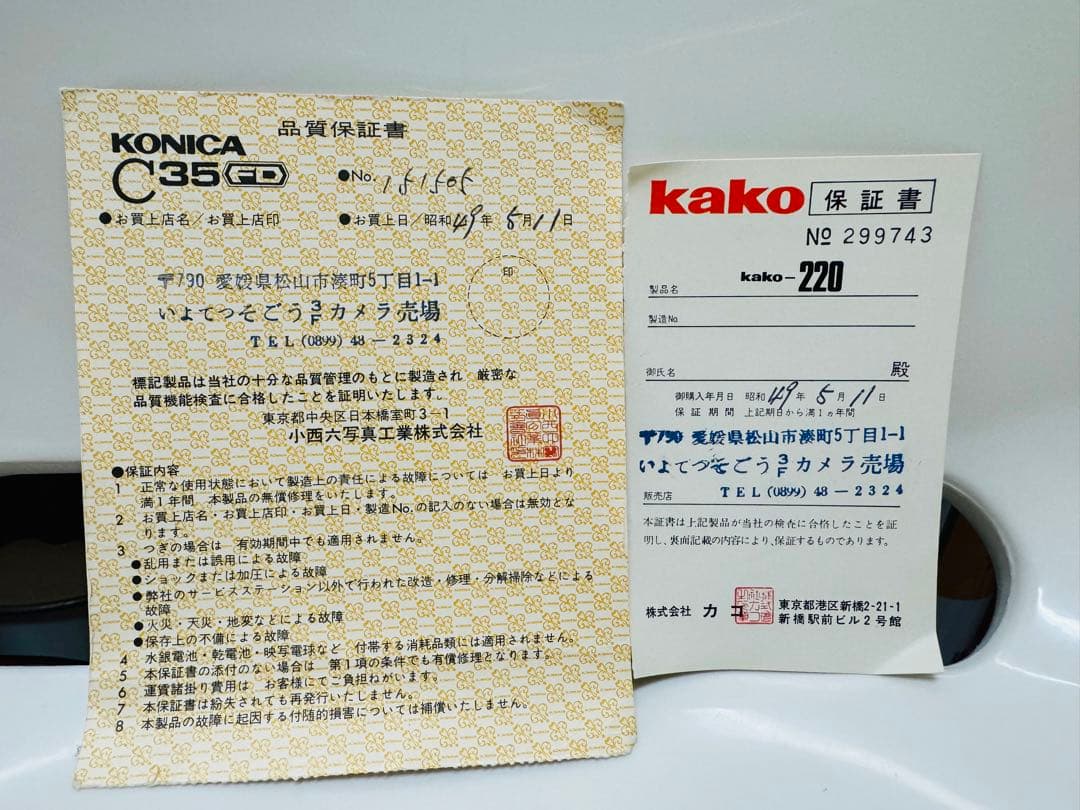 品質保証書
KONICA
C35 FD
●No. 151505
●お買上店名/お買上店印
●お買上日/昭和49年5月11日
〒790 愛媛県松山市湊町5丁目1-1
いよてつそごう3Fカメラ売場
TEL (0899) 48-2324
印
標記製品は当社の十分な品質管理のもとに製造され 厳密な
品質機能検査に合格したことを証明いたします。
東京都中央区日本橋室町3-1
小西六写真工業株式会社
●保証内容
1 正常な使用状態において製造上の責任による故障については お買上日より
満1年間 本製品の無償修理をいたします。
2 お買上店名・お買上店印・お買上日・製造No.の記入のない場合は無効とな
ります。
3 つぎの場合は 有効期間中でも適用されません。
●乱用または誤用による故障
●ショックまたは加圧による故障
●弊社のサービスステーション以外で行われた改造・修理・分解掃除などによる
故障
●火災・天災・地変などによる故障
●保存上の不備による故障
4 水銀電池・乾電池・映写電球など 付帯する消耗品類には適用されません。
5 本保証書の添付のない場合は 第1項の条件でも有償修理となります。
6 運賃諸掛り費用は お客様にてご負担ねがいます。
7 本保証書は紛失されても再発行いたしません。
8 本製品の故障に起因する付随的損害については補償いたしません。
kako 保証書
№ 299743
製品名 kako-220
製造No.
御氏名 殿
御購入年月日 昭和49年5月11日
保証期間 上記期日から満1ヵ年間
〒790 愛媛県松山市湊町5丁目1-1
いよてつそごう3Fカメラ売場
販売店 TEL (0899) 48-2324
本証書は上記製品が当社の検査に合格したことを証
明し、裏面記載の内容により、保証するものであります。
株式会社 カコ
東京都港区新橋2-21-1
新橋駅前ビル2号館